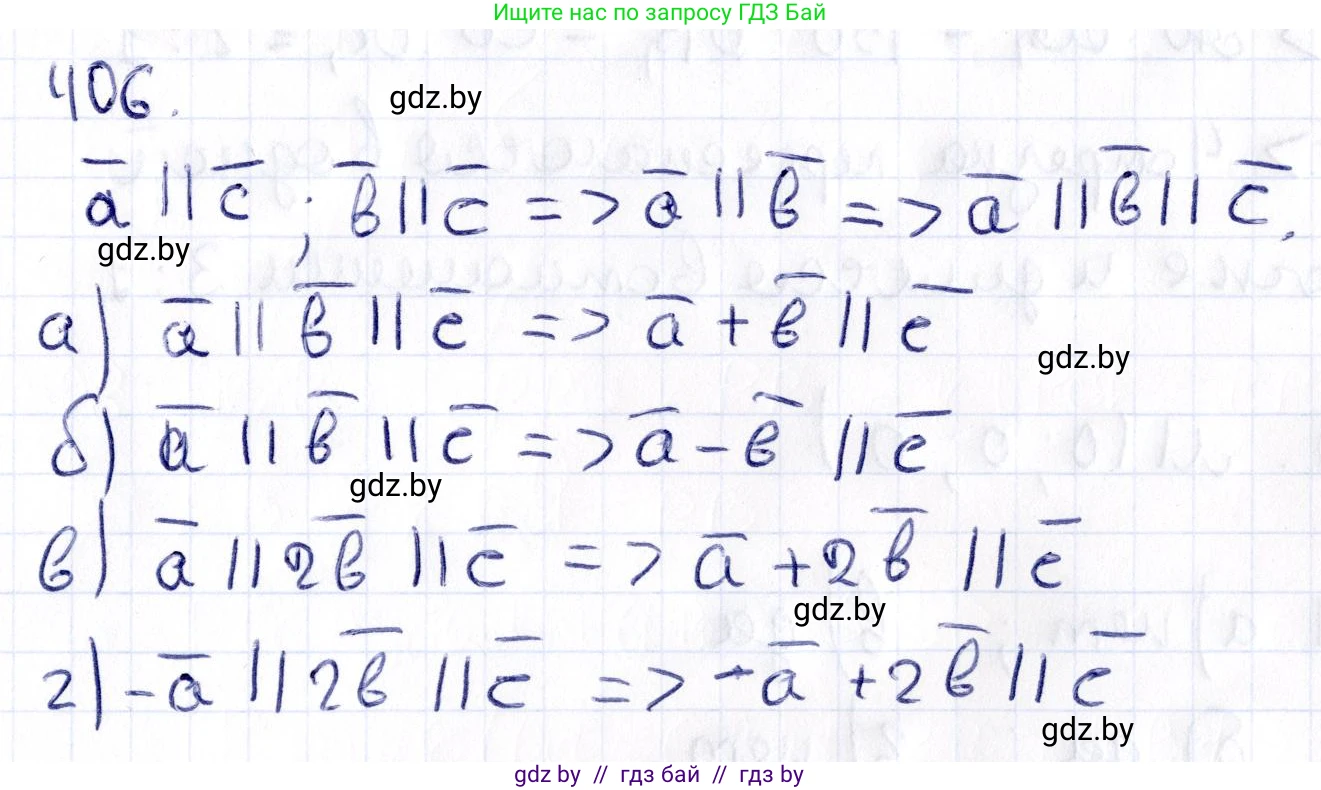 Ищите нас по запросу ГДЗ Бай
406.
gdz.by
a̅ || c̅ ; b̅ || c̅ => a̅ || b̅ => a̅ || b̅ || c̅.
gdz.by
а) a̅ || b̅ || c̅ => a̅ + b̅ || c̅
gdz.by
б) a̅ || b̅ || c̅ => a̅ - b̅ || c̅
gdz.by
в) a̅ || 2b̅ || c̅ => a̅ + 2b̅ || c̅
gdz.by
г) -a̅ || 2b̅ || c̅ => -a̅ + 2b̅ || c̅
gdz.by
gdz.by // гдз бай // гдз by